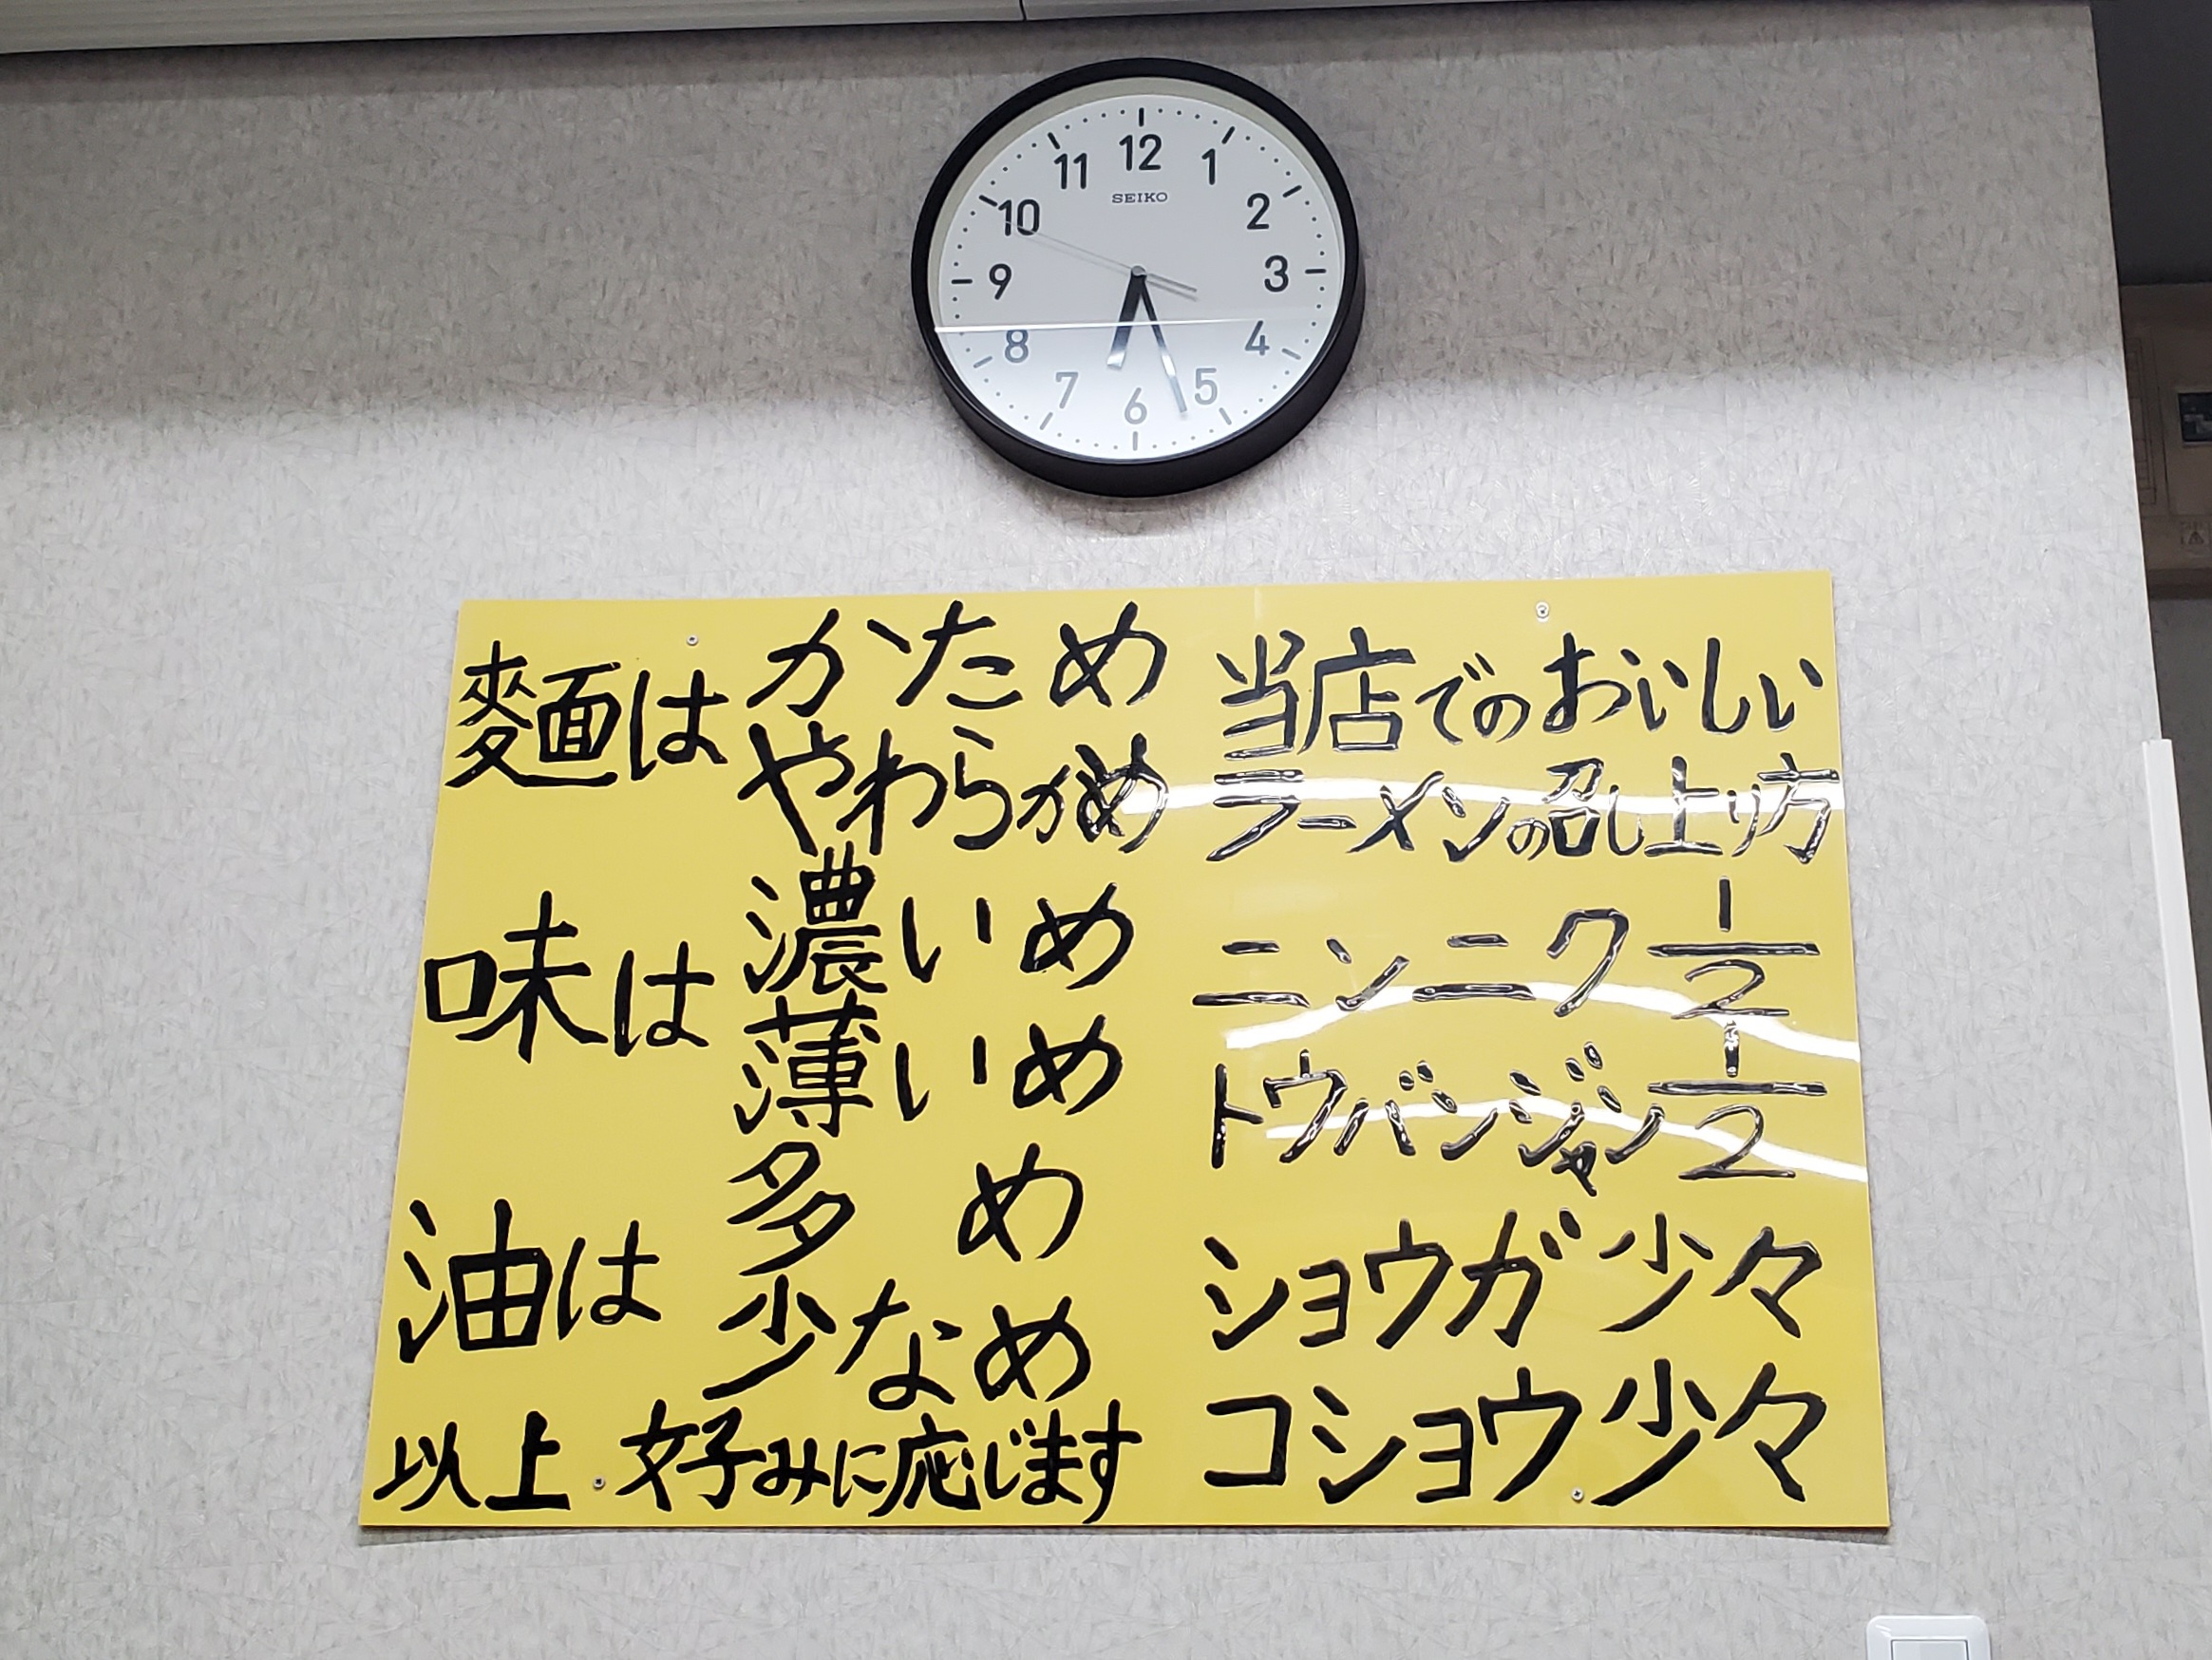 12
1
2
3
4
5
6
7
8
9
10
11
SEIKO
麺は かため
やわらかめ
味は 濃いめ
薄いめ
油は 多め
少なめ
以上.好みに応じます
当店でのおいしい
ラーメンの召し上り方
ニンニク 1/2
トウバンジャン 1/2
ショウガ 少々
コショウ 少々